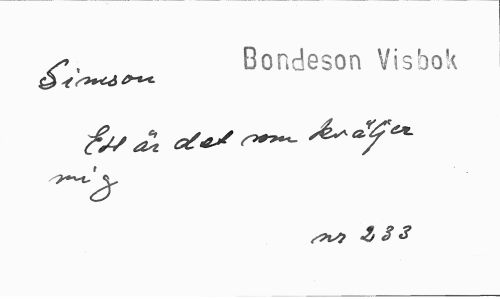 Bondeson Visbok
Simson
Ett är det som kväljer
mig
nr 233